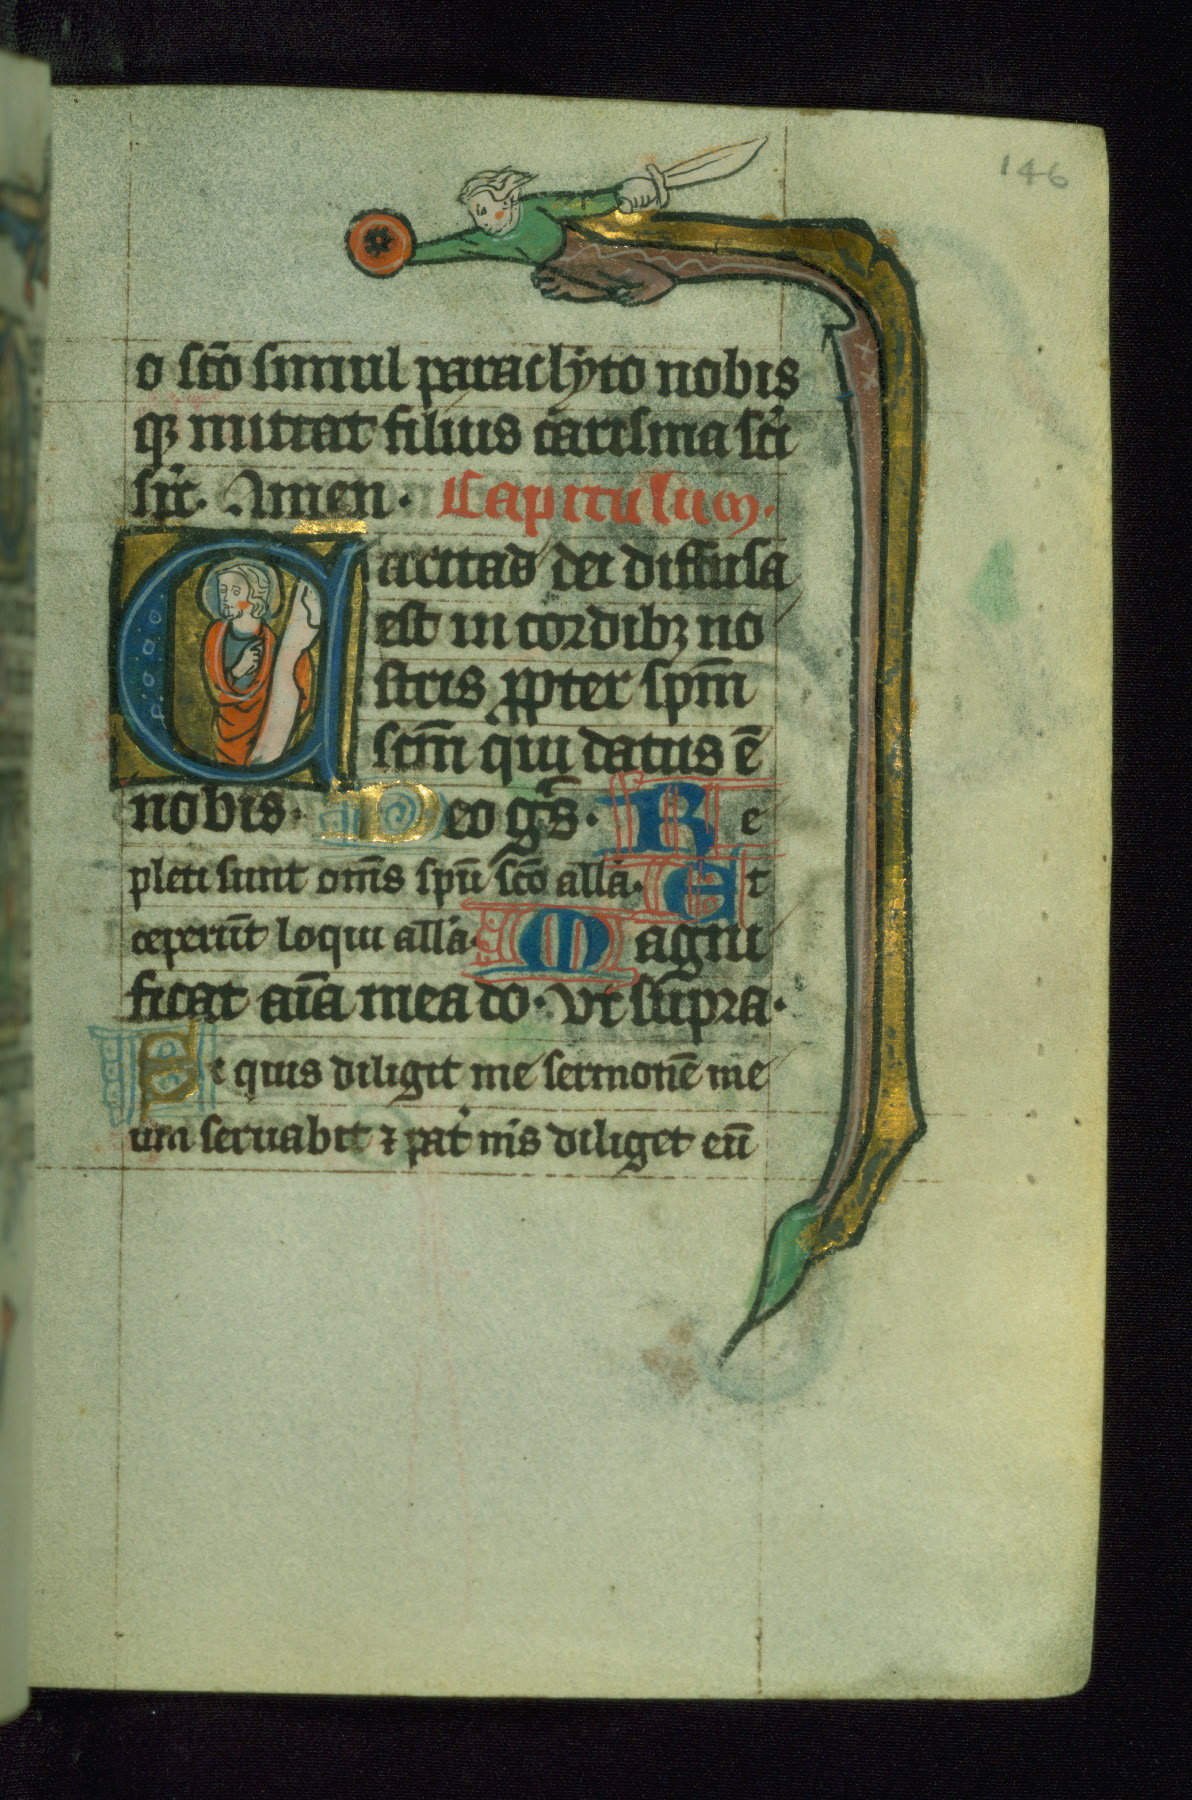 146
o scō simul paraclyto nobis
qꝫ mittat filius carisma sci
sp̄c. Amen. Capitulum.
Caritas dei diffusa
est in cordibꝫ no
stris ꝓpter sp̄m
scm̄ qui datus ē
nobis. Deo gr̄s. Re
pleti sunt om̄s sp̄u scō all'a. Et
ceperūt loqui all'a Magni
ficat aīa mea do. vt supra.
Si quis diligit me sermonē me
um seruabit ⁊ pat̄ m̄s diliget eū